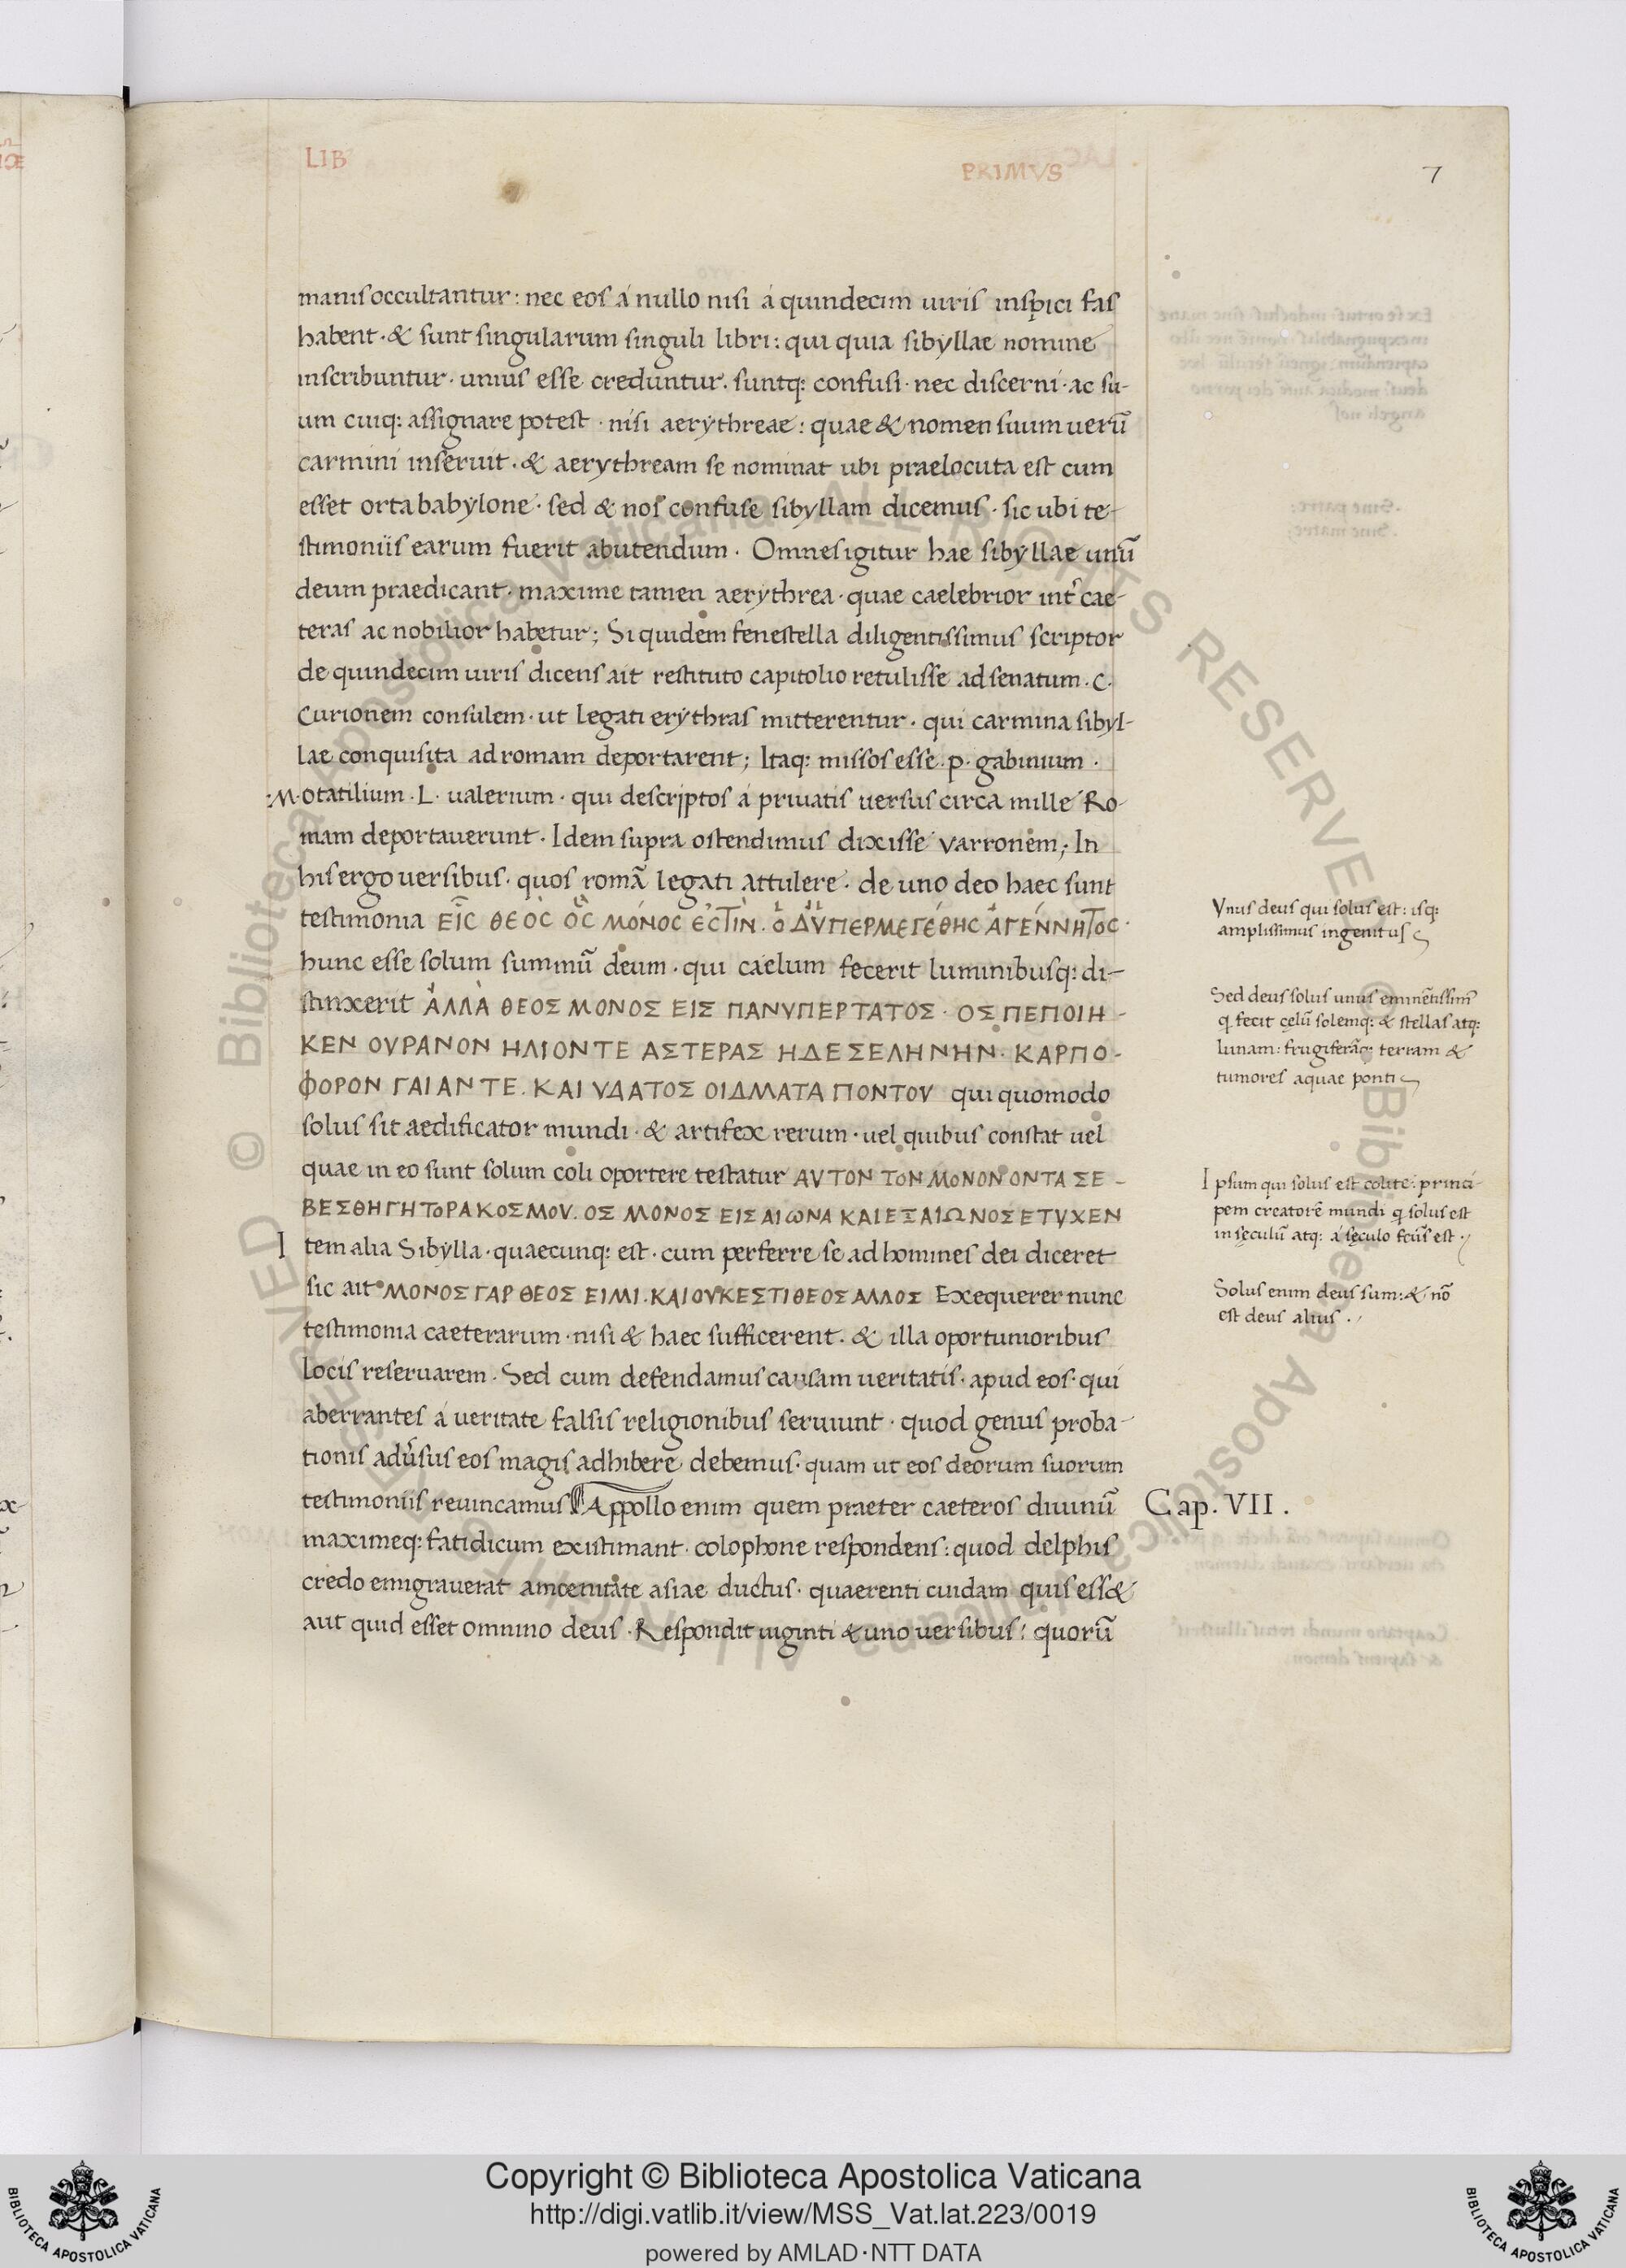 LIB
PRIMVS
7
manis occultantur: nec eos á nullo nisi á quindecim uiris inspici fas
habent · & sunt singularum singuli libri: qui quia sibyllae nomine
inscribuntur · unius esse creduntur · suntq: confusi · nec discerni · ac su-
um cuiq: assignare potest · nisi aerythreae: quae & nomen suum uerū
carmini inseruit · & aerythream se nominat ubi praelocuta est cum
esset orta babylone · sed & nos confuse sibyllam dicemus · sic ubi te-
stimoniis earum fuerit abutendum · Omnes igitur hae sibyllae unū
deum praedicant · maxime tamen aerythrea · quae caelebrior int̄ cae-
teras ac nobilior habetur; Si quidem fenestella diligentissimus scriptor
de quindecim uiris dicens ait restituto capitolio retulisse ad senatum · C ·
Curionem consulem · ut legati erythras mitterentur · qui carmina sibyl-
lae conquisita ad romam deportarent; Itaq: missos esse · p · gabinium ·
· M · otatilium · L · ualerium · qui descriptos á priuatis uersus circa mille Ro-
mam deportauerunt · Idem supra ostendimus dixisse varronem; In
his ergo uersibus · quos romā legati attulere · de uno deo haec sunt
testimonia ΕἿC ΘΕῸC ὋC ΜΌΝΟC ἘCΤΊΝ · Ὁ ΔΫΠΕΡΜΕΓΕΘΗC ἈΓΈΝΝΗΤΟC ·
hunc esse solum summū deum · qui caelum fecerit luminibusq: di-
stinxerit ἈΛΛᾺ ΘΕΟΣ ΜΟΝΟΣ ΕΙΣ ΠΑΝΥΠΕΡΤΑΤΟΣ · ΟΣ ΠΕΠΟΙΗ-
ΚΕΝ ΟΥΡΑΝΟΝ ΗΛΙΟΝΤΕ ΑΣΤΕΡΑΣ ΗΔΕ ΣΕΛΗΝΗΝ · ΚΑΡΠΟ-
ΦΟΡΟΝ ΓΑΙΑΝΤΕ · ΚΑΙ ΥΔΑΤΟΣ ΟΙΔΜΑΤΑ ΠΟΝΤΟΥ qui quomodo
solus sit aedificator mundi · & artifex rerum · uel quibus constat uel
quae in eo sunt solum coli oportere testatur ΑΥΤΟΝ ΤΟΝ ΜΟΝΟΝ ΟΝΤΑ ΣΕ-
ΒΕΣΘΗΓΗΤΟΡΑ ΚΟΣΜΟΥ · ΟΣ ΜΟΝΟΣ ΕΙΣ ΑΙΩΝΑ ΚΑΙ ΕΞ ΑΙΩΝΟΣ ΕΤΥΧΕΝ
Item alia Sibylla · quaecunq: est · cum perferre se ad homines dei diceret
sic ait ΜΟΝΟΣ ΓΑΡ ΘΕΟΣ ΕΙΜΙ · ΚΑΙ ΟΥΚΕΣΤΙ ΘΕΟΣ ΑΛΛΟΣ Exequerer nunc
testimonia caeterarum · nisi & haec sufficerent · & illa oportunioribus
locis reseruarem · Sed cum defendamus causam ueritatis · apud eos · qui
aberrantes á ueritate falsis religionibus seruiunt · quod genus proba-
tionis adūsus eos magis adhibere debemus · quam ut eos deorum suorum
testimoniis reuincamus Appollo enim quem praeter caeteros diuinū
maximeq: fatidicum existimant · colophone respondens: quod delphis
credo emigrauerat amoenitate asiae ductus · quaerenti cuidam quis ess&
aut quid esset omnino deus · Respondit uiginti & uno uersibus: quorū
Vnus deus qui solus est: isq:
amplissimus ingenitus
Sed deus solus unus eminētissim'
q fecit cęlū solemq: & stellas atq:
lunam: frugiferāq: terram &
tumores aquae ponti
Ipsum qui solus est colite: princi-
pem creatorē mundi q solus est
in sęculū atq: á sęculo fcūs est ·
Solus enim deus sum: & nō
est deus alius ·
Cap. VII.
Copyright © Biblioteca Apostolica Vaticana
http://digi.vatlib.it/view/MSS_Vat.lat.223/0019
powered by AMLAD·NTT DATA
BIBLIOTECA APOSTOLICA VATICANA
BIBLIOTECA APOSTOLICA VATICANA